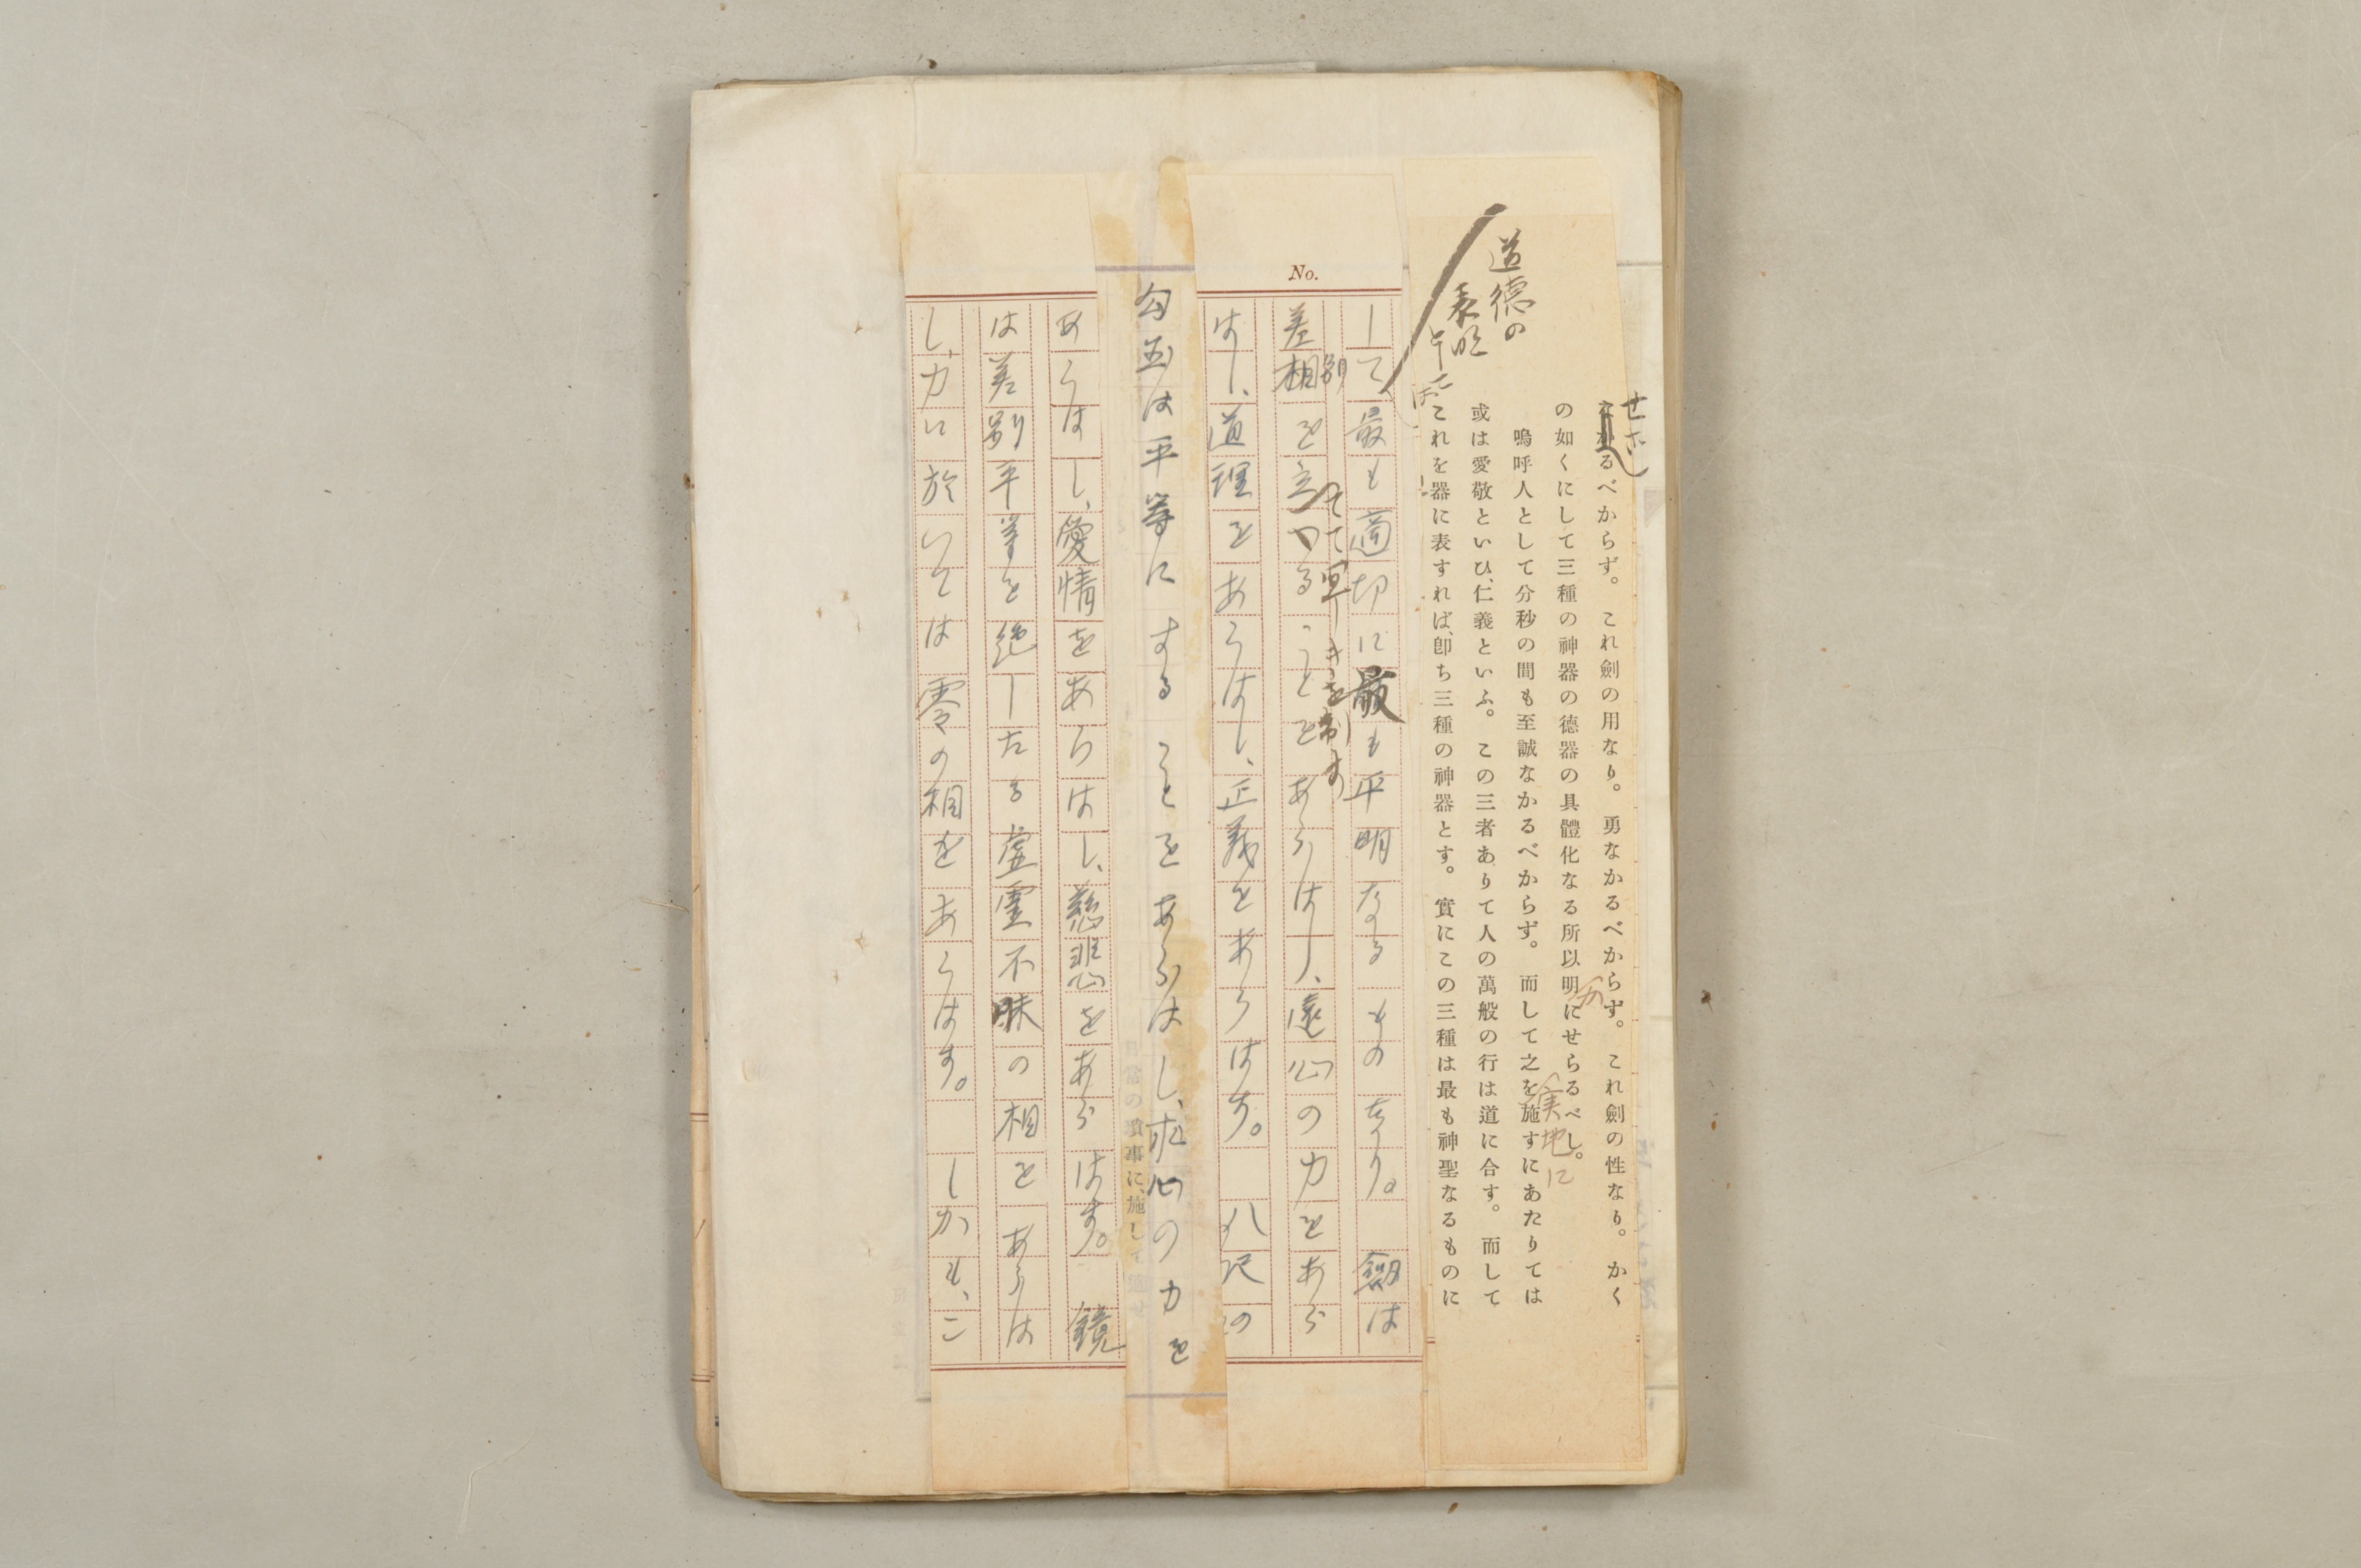 なかるべからず。これ劍の用なり。勇なかるべからず。これ劍の性なり。かく
の如くにして三種の神器の德器の具體化なる所以明にせらるべし。
嗚呼人として分秒の間も至誠なかるべからず。而して之を施すにあたりては
実地に
或は愛敬といひ、仁義といふ。この三者ありて人の萬般の行は道に合す。而して
これを器に表すれば、卽ち三種の神器とす。實にこの三種は最も神聖なるものに
道德の
表明
No.
して最も適切に最も平明なるものなり。劔は
別
差相を立つることをあらはし、遠心の力をあら
はし、道理をあらはし、正義をあらはす。八尺の
勾玉は平等にすることをあらはし、求心の力を
あらはし、愛情をあらはし、慈悲をあらはす。鏡
は差別平等を絶したる虚霊不昧の相をあらは
し、力に於いては零の相をあらはす。しかも、こ